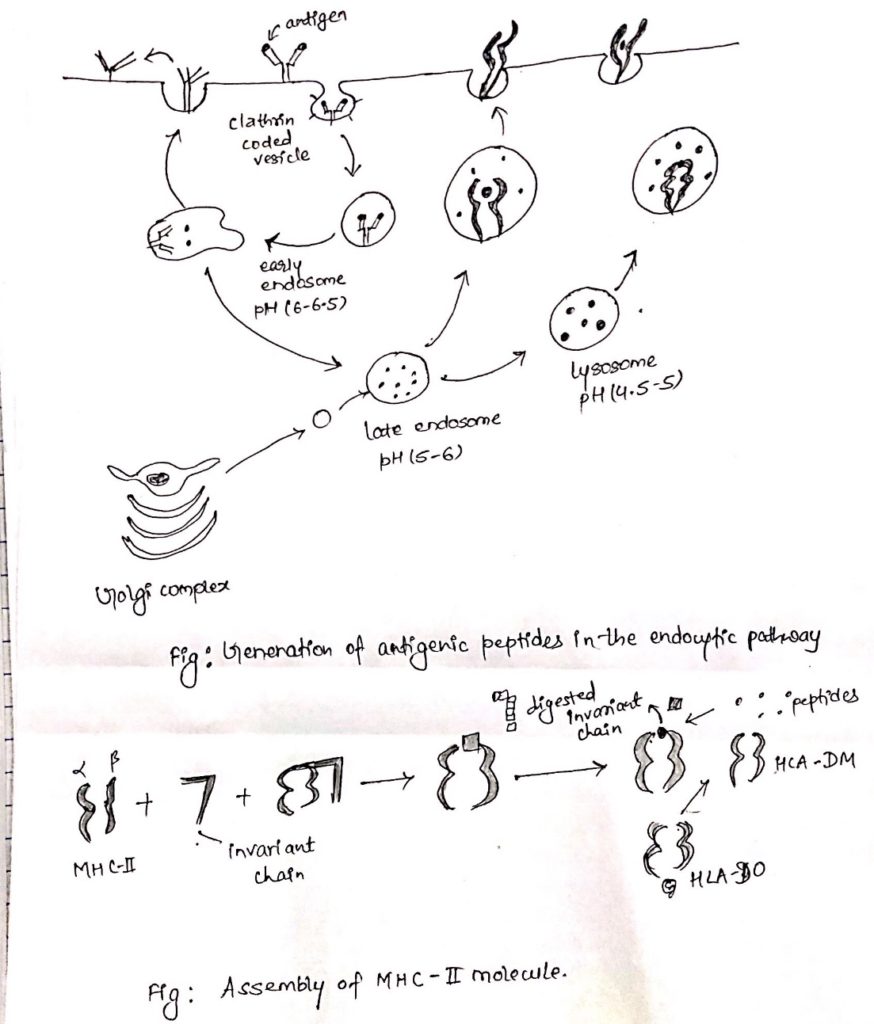 antigen
clathrin
coded
vesicle
early
endosome
pH (6-6.5)
lysosome
pH (4.5-5)
late endosome
pH (5-6)
Golgi complex
Fig: Generation of antigenic peptides in the endocytic pathway
digested
invariant
chain
peptides
α β
+
+
HCA-DM
MHC-II
invariant
chain
HLA-DO
Fig: Assembly of MHC-II molecule.